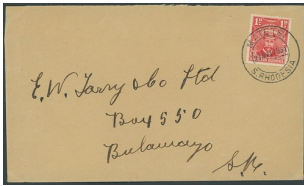 1D 1D
S. RHODESIA
E. W. Tarry & Co Ltd
Box 550
Bulawayo
S.R.